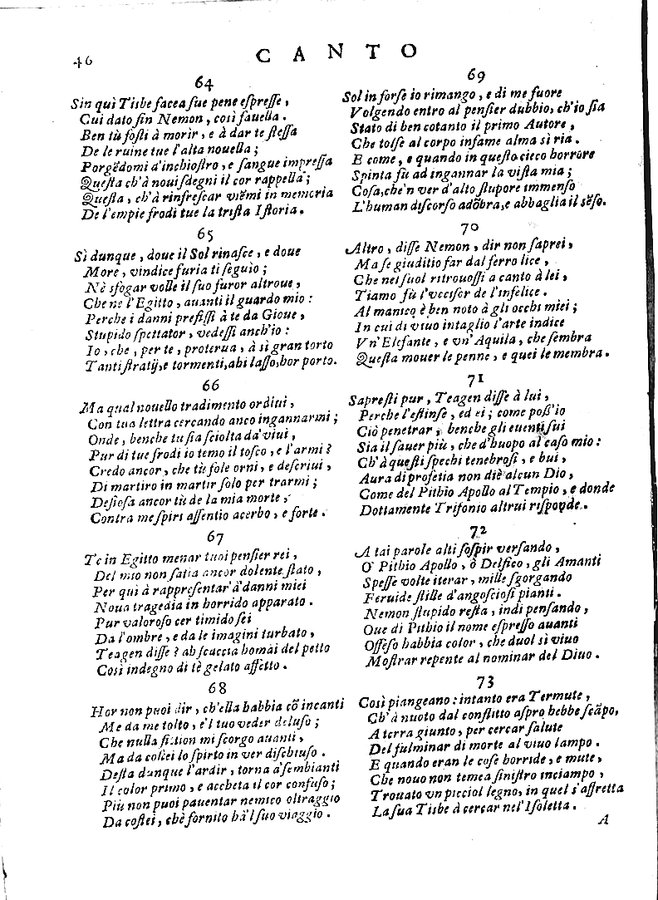 46
CANTO
64
Sin quì Tisbe facea sue pene espresse,
Cui dato fin Nemon, così fauella.
Ben tù fosti à morir, e à dar te stessa
De le ruine tue l'alta nouella;
Porgēdomi d'inchiostro, e sangue impressa
Questa ch'à noui sdegni il cor rappella;
Questa, ch'à rinfrescar viēmi in memoria
De l'empie frodi tue la trista Istoria.
65
Sì dunque, doue il Sol rinasce, e doue
More, vindice furia ti seguio;
Nè sfogar volle il suo furor altroue,
Che ne l'Egitto, auanti il guardo mio:
Perche i danni prefissi à te da Gioue,
Stupido spettator, vedessi anch'io:
Io, che, per te, proterua, à sì gran torto
Tanti stratij, e tormenti, ahi lasso, hor porto.
66
Ma qual nouello tradimento ordiui,
Con tua lettra cercando anco ingannarmi;
Onde, benche tu sia sciolta da' viui,
Pur di tue frodi io temo il tosco, e l'armi?
Credo ancor, che tù sole orni, e descriui,
Di martiro in martir solo per trarmi;
Desiosa ancor tù de la mia morte,
Contra me spiri assentio acerbo, e forte.
67
Te in Egitto menar tuoi pensier rei,
Del mio non satia ancor dolente stato,
Per qui à rappresentar à danni miei
Noua tragedia in horrido apparato.
Pur valoroso cer timido sei
Da l'ombre, e da le imagini turbato,
Teagen disse? ah scaccia homai del petto
Così indegno di tè gelato affetto.
68
Hor non puoi dir, ch'ella habbia cō incanti
Me da me tolto, e'l tuo veder deluso;
Che nulla fittion mi scorgo auanti,
Ma da costei lo spirto in ver dischiuso.
Desta dunque l'ardir, torna a' sembianti
Il color primo, e accheta il cor confuso;
Più non puoi pauentar nemico oltraggio
Da costei, chè fornito hà'l suo viaggio.
69
Sol in forse io rimango, e di me fuore
Volgendo entro al pensier dubbio, ch'io sia
Stato di ben cotanto il primo Autore,
Che tolse al corpo infame alma sì ria.
E come, e quando in questo cieco horrore
Spinta fù ad ingannar la vista mia;
Cosa, che'n ver d'alto stupore immenso
L'human discorso adōbra, e abbaglia il sēso.
70
Altro, disse Nemon, dir non saprei,
Ma se giuditio far dal ferro lice,
Che nel suol ritrouossi a canto à lei,
Tiamo fù l'vccisor de l'infelice.
Al manico è ben noto à gli occhi miei;
In cui di viuo intaglio l'arte indice
Vn'Elefante, e vn'Aquila, che sembra
Questa mouer le penne, e quei le membra.
71
Sapresti pur, Teagen disse à lui,
Perche l'estinse, ed ei; come poss'io
Ciò penetrar, benche gli euenti sui
Sia il sauer più, che d'huopo al caso mio:
Ch'à questi spechi tenebrosi, e bui,
Aura di profetia non diè alcun Dio,
Come del Pithio Apollo al Tempio, e donde
Dottamente Trifonio altrui risponde.
72
A tai parole alti sospir versando,
O' Pithio Apollo, ò Delfico, gli Amanti
Spesse volte iterar, mille sgorgando
Feruide stille d'angosciosi pianti.
Nemon stupido resta, indi pensando,
Oue di Pithio il nome espresso auanti
Offeso habbia color, che duol sì viuo
Mostrar repente al nominar del Diuo.
73
Così piangeano: intanto era Termute,
Ch'à nuoto dal conflitto aspro hebbe scāpo,
A terra giunto, per cercar salute
Del fulminar di morte al viuo lampo.
E quando eran le cose horride, e mute,
Che nouo non temea sinistro inciampo,
Trouato vn picciol legno, in quel s'affretta
La sua Tisbe à cercar nel'Isoletta.
A